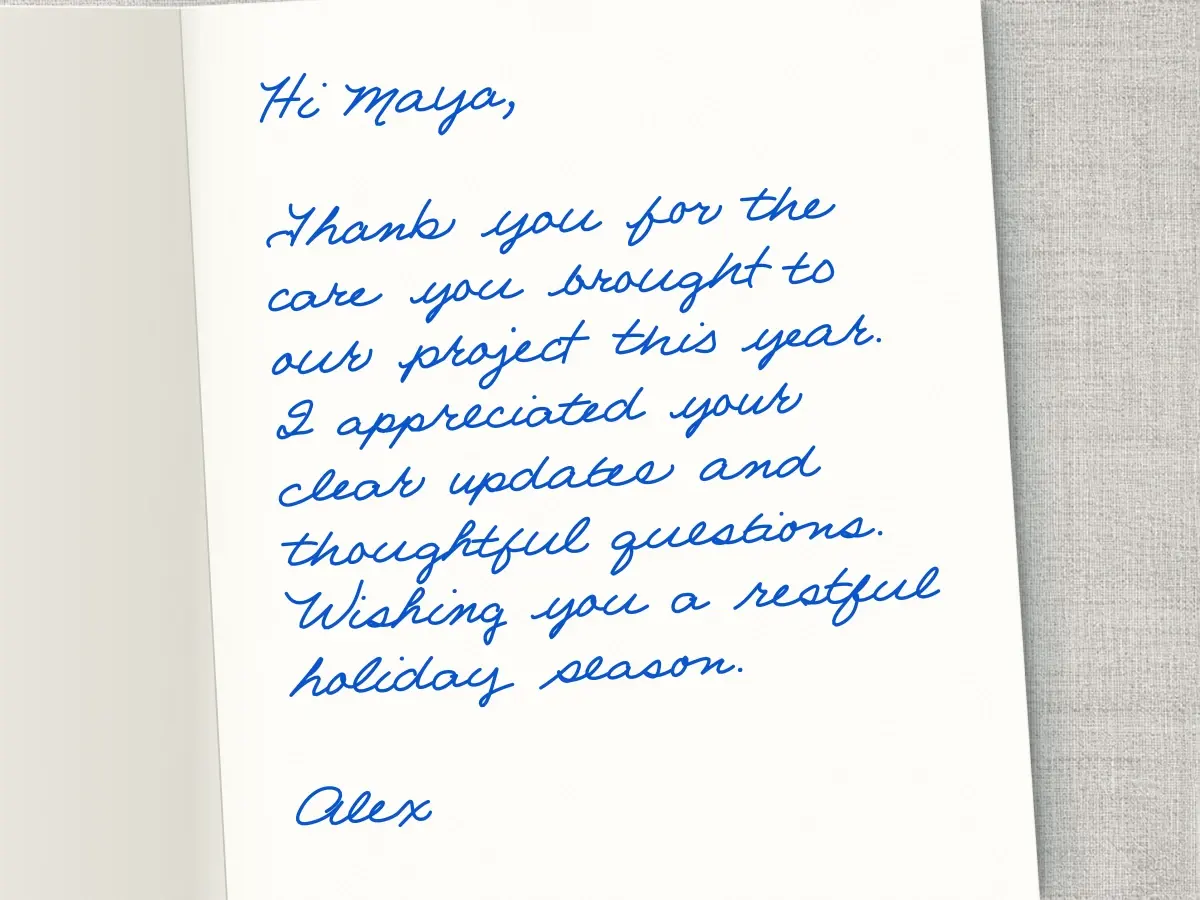 Hi Maya,
Thank you for the
care you brought to
our project this year.
I appreciated your
clear updates and
thoughtful questions.
Wishing you a restful
holiday season.
Alex